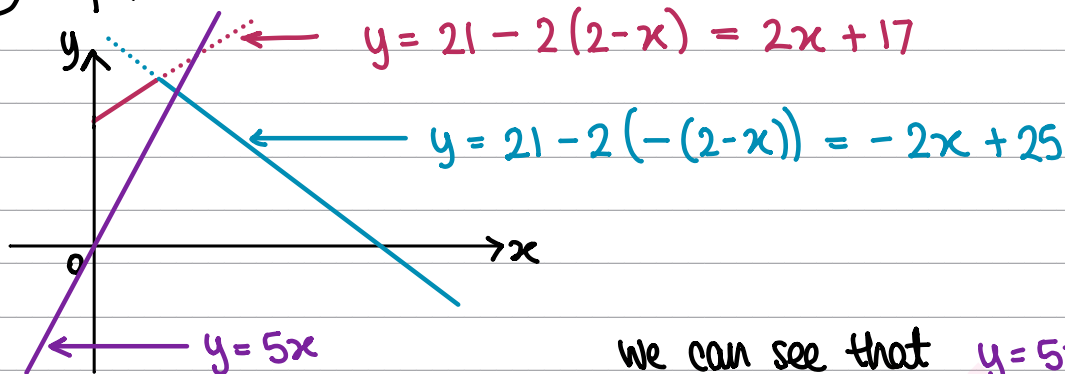 y
y = 21 - 2(2-x) = 2x + 17
y = 21 - 2(-(2-x)) = - 2x + 25
x
0
y = 5x
we can see that y = 5